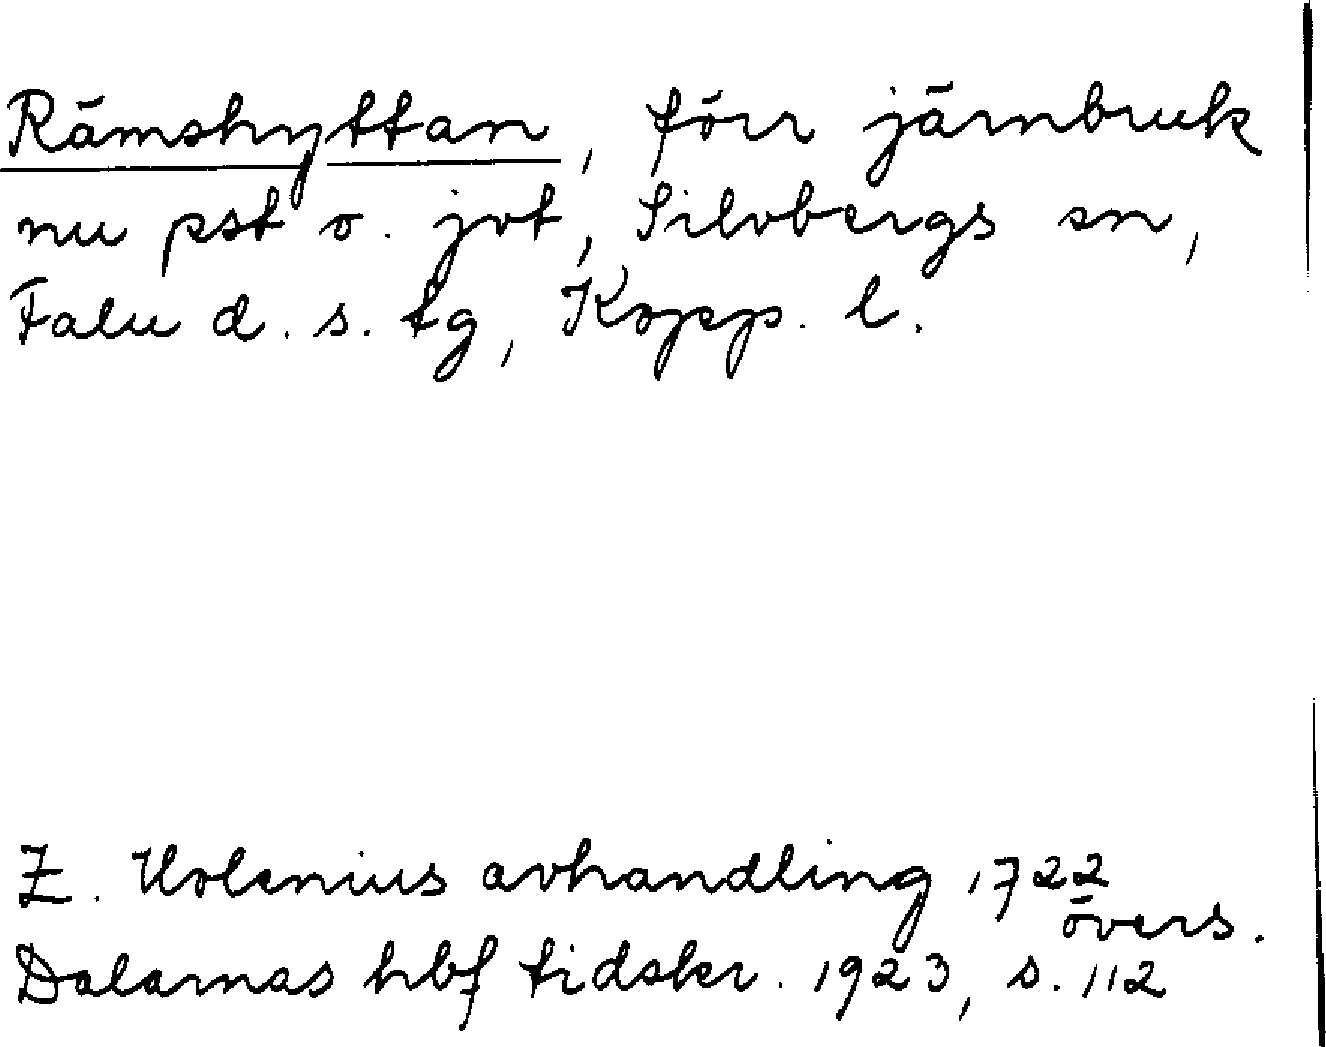 Rämshyttan, förr järnbruk
nu pst o. jvt, Silvbergs sn,
Falu d. s. tg, Kopp. l.
Z. Holenius avhandling 1722
övers.
Dalarnas hbf tidskr. 1923, s. 112